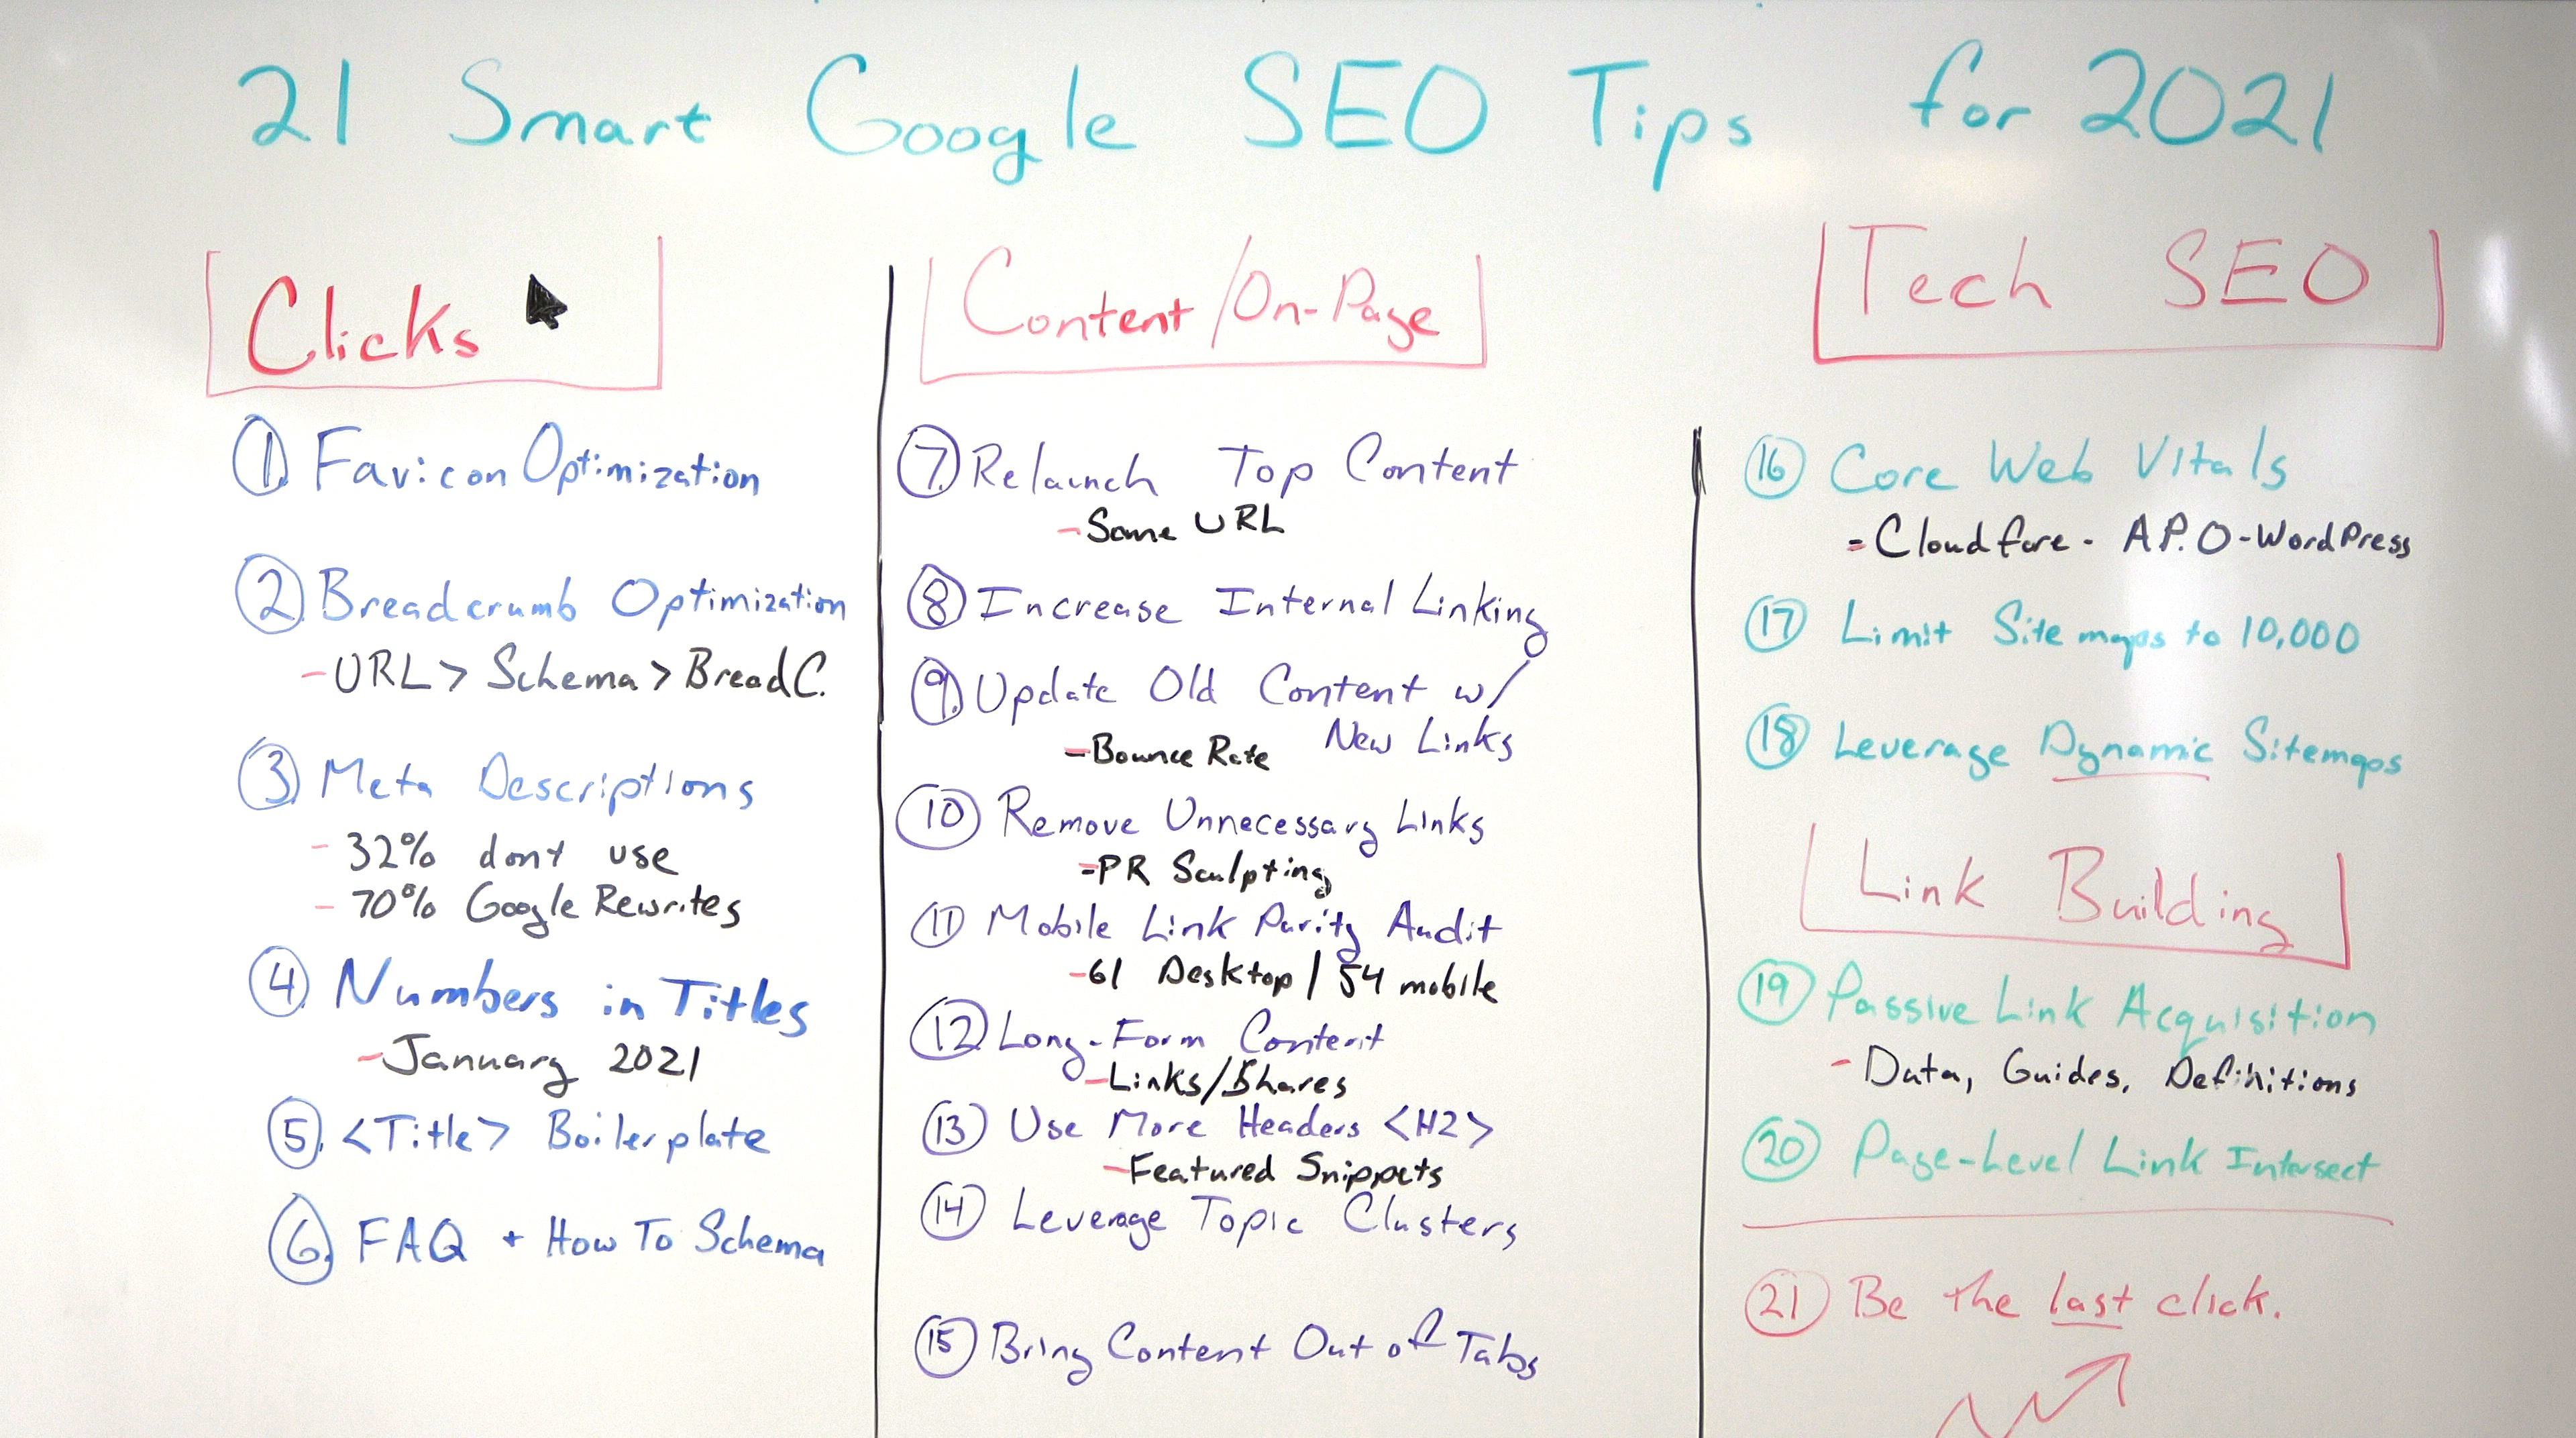 21 Smart Google SEO Tips for 2021
Clicks
1. Favicon Optimization
2. Breadcrumb Optimization
- URL > Schema > BreadC.
3. Meta Descriptions
- 32% dont use
- 70% Google Rewrites
4. Numbers in Titles
- January 2021
5. <Title> Boilerplate
6. FAQ + How To Schema
Content/On-Page
7. Relaunch Top Content
- Same URL
8. Increase Internal Linking
9. Update Old Content w/
New Links
- Bounce Rate
10 Remove Unnecessary Links
- PR Sculpting
11 Mobile Link Parity Audit
- 61 Desktop / 54 mobile
12. Long-Form Content
- Links/Shares
13 Use More Headers <H2>
- Featured Snippets
14 Leverage Topic Clusters
15 Bring Content Out of Tabs
Tech SEO
16 Core Web Vitals
- Cloudfare - A.P.O - WordPress
17 Limit Sitemaps to 10,000
18 Leverage Dynamic Sitemaps
Link Building
19 Passive Link Acquisition
- Data, Guides, Definitions
20 Page-Level Link Intersect
21 Be the last click.